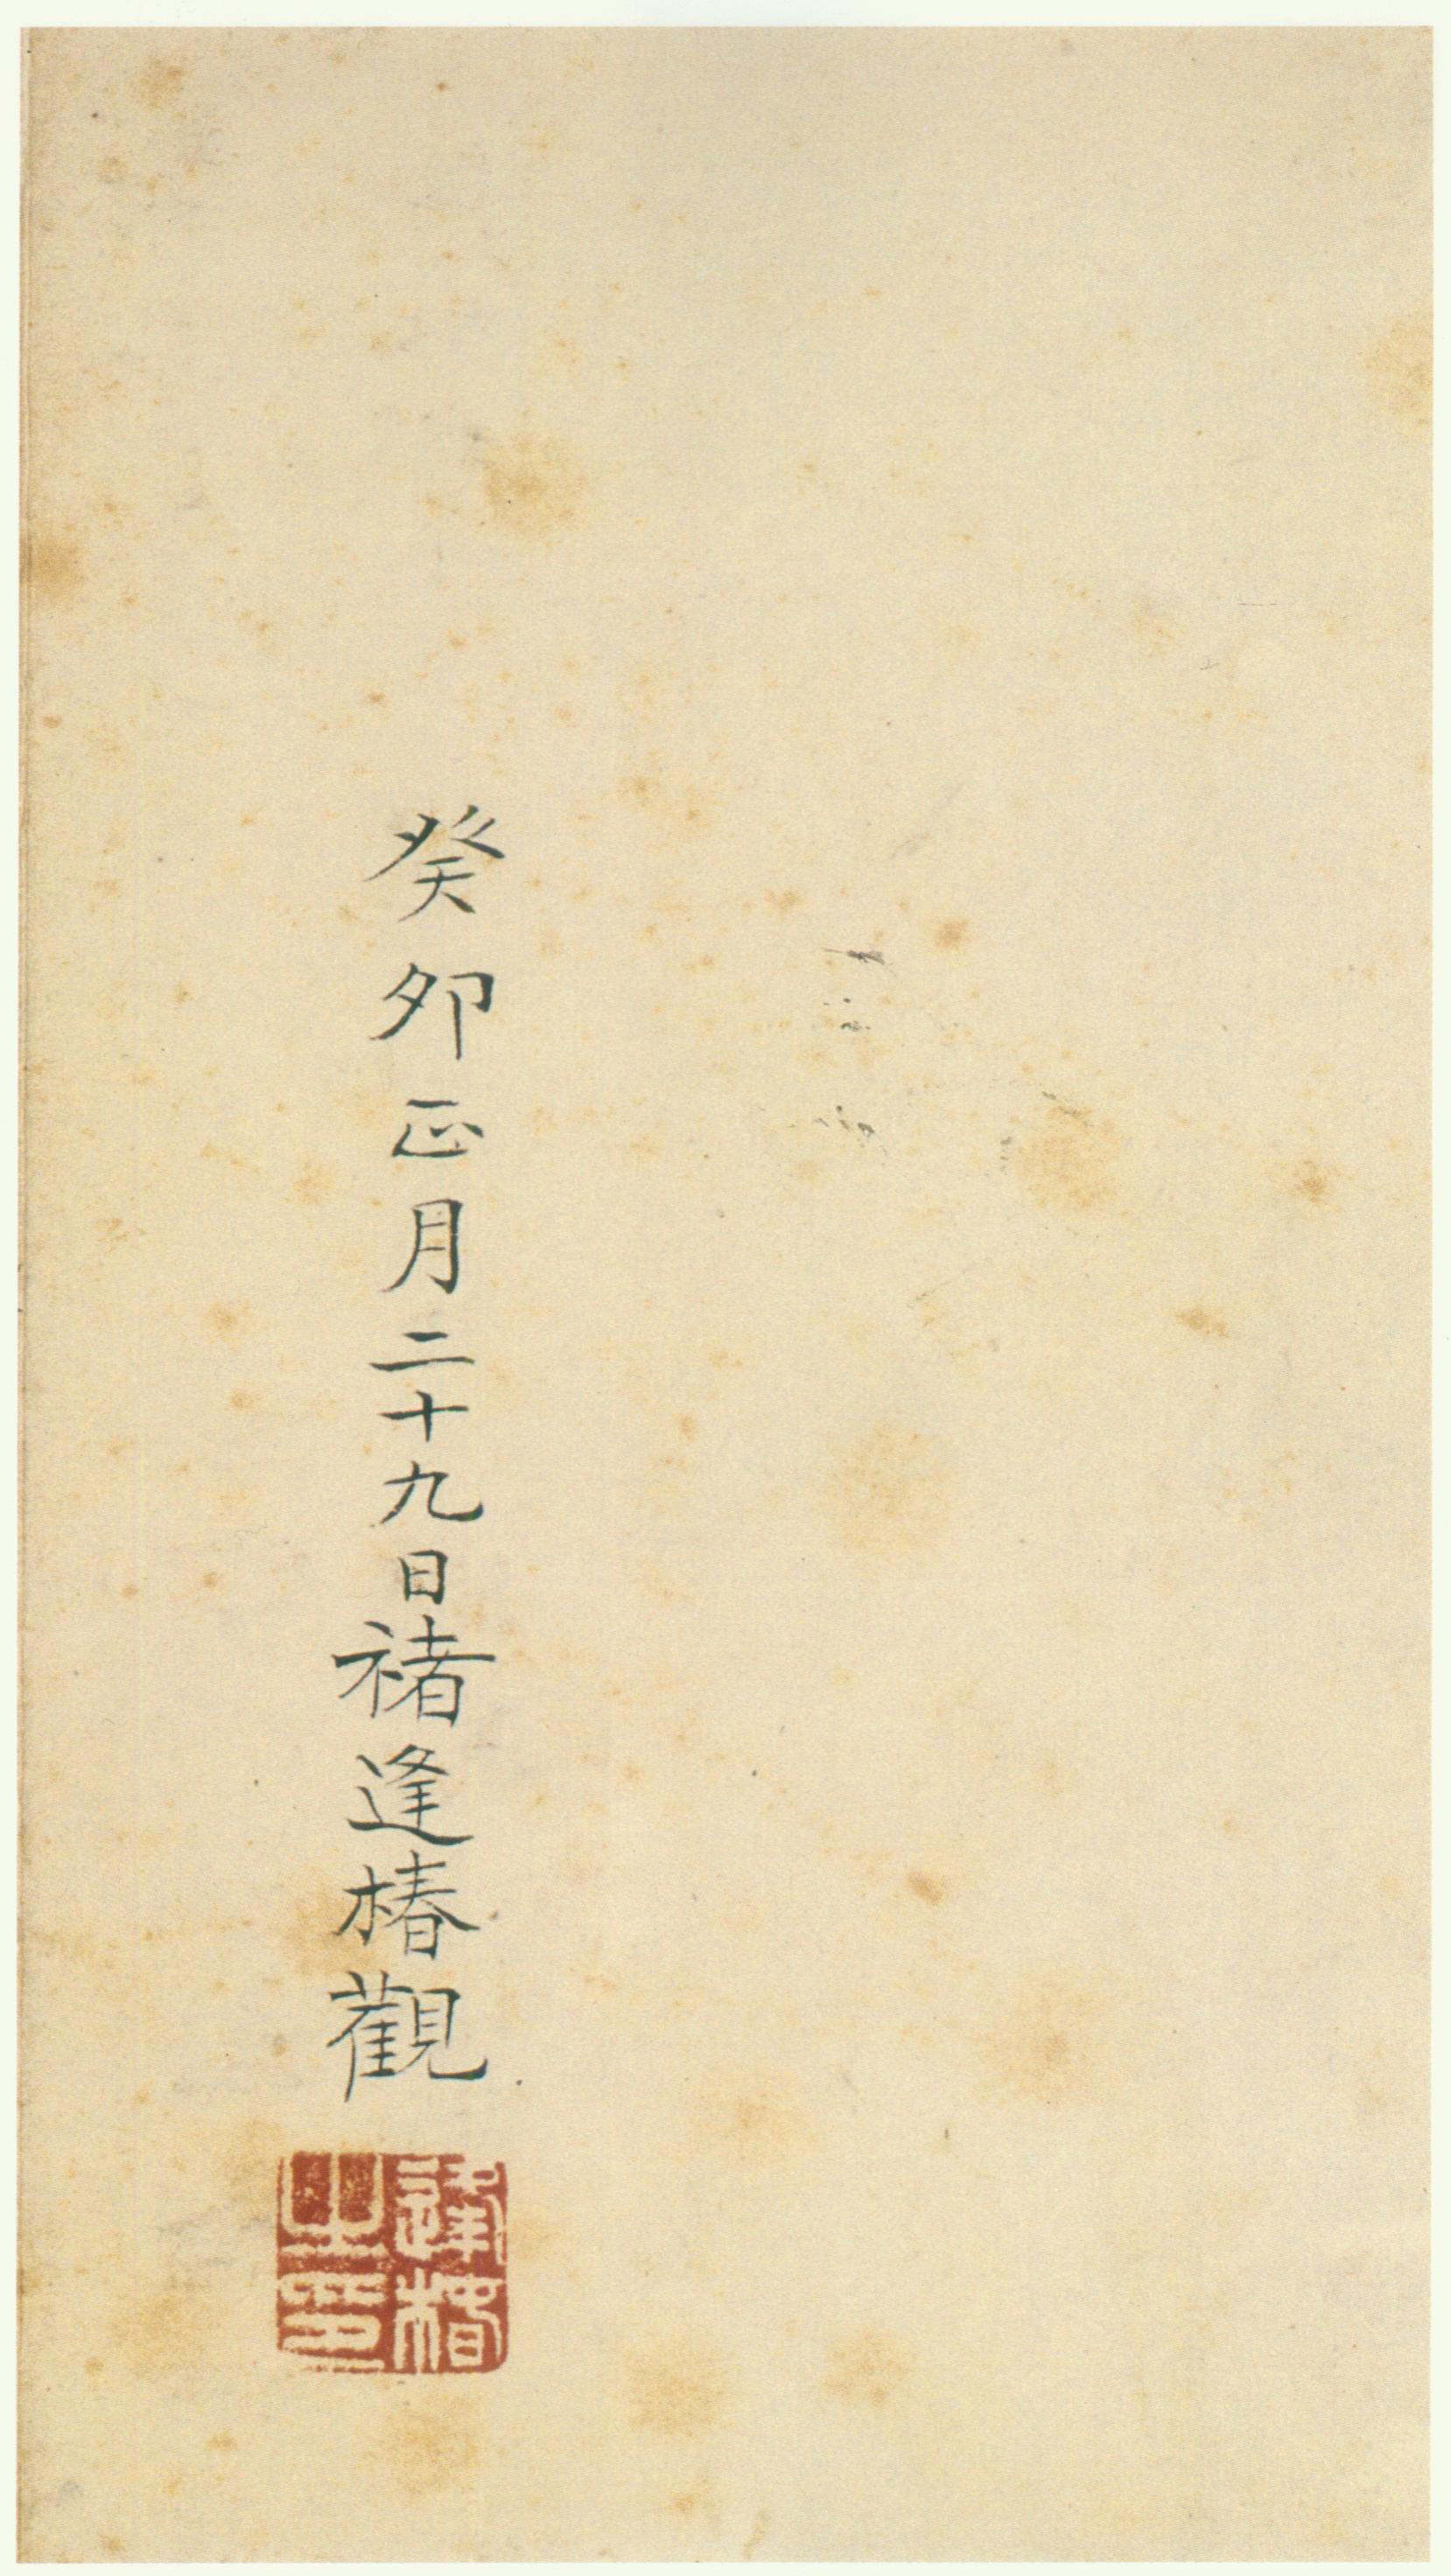 癸卯正月二十九日褚逢椿觀
逢椿
之印